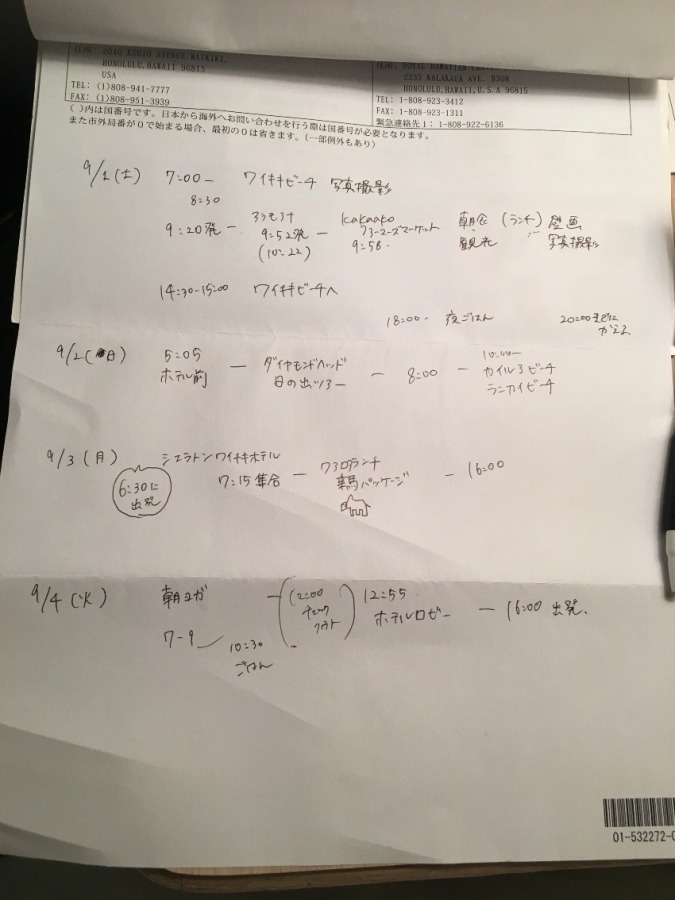 住所: 2040 KUHIO AVENUE, WAIKIKI,
HONOLULU, HAWAII 96815
USA
TEL: (1)808-941-7777
FAX: (1)808-951-3939
住所: ROYAL HAWAIIAN
2233 KALAKAUA AVE. B308
HONOLULU, HAWAII, U.S.A 96815
TEL: 1-808-923-3412
FAX: 1-808-923-1311
緊急連絡先1: 1-808-922-6136
( )内は国番号です。日本から海外へお問い合わせを行う際は国番号が必要となります。
また市外局番が0で始まる場合、最初の0は省きます。(一部例外もあり)
9/1(土) 7:00 — ワイキキビーチ 写真撮影
8:30
9:20発 — アラモアナ 9:52発 (10:22) — kakaako ファーマーズマーケット 9:58. 朝食 観光 (ランチ) 壁画 写真撮影
14:30-15:00 ワイキキビーチへ
18:00. 夜ごはん 20:00までに
かえる
9/2(日) 5:05 ホテル前 — ダイヤモンドヘッド 日の出ツアー — 8:00 — 10:00— カイルアビーチ
ラニカイビーチ
9/3(月) シェラトンワイキキホテル
6:30に
出発
7:15集合 — クアロアランチ
乗馬パッケージ — 16:00
9/4(火) 朝ヨガ — (12:00 チェックアウト) 12:55
ホテルロビー — 16:00 出発.
7-9
10:30
ごはん
01-532272-0